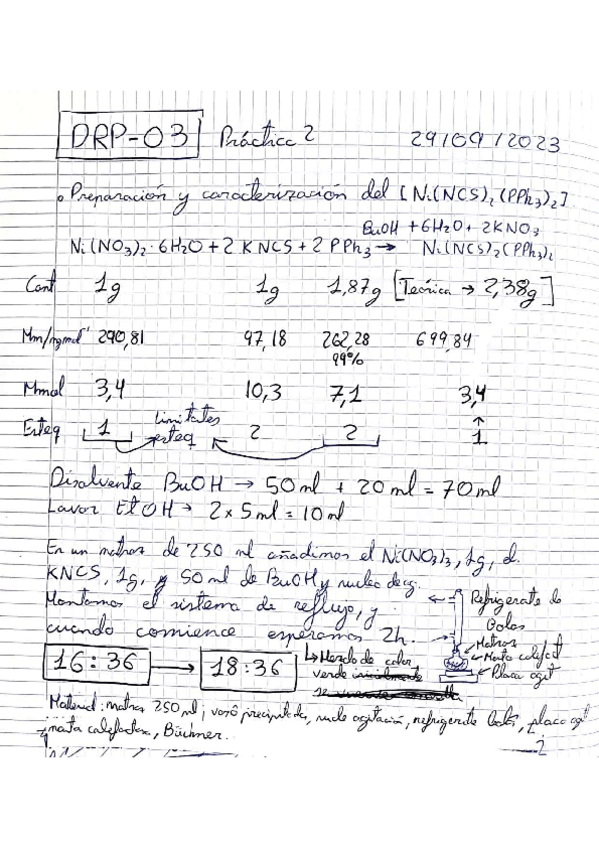 DRP-03 Práctica 2 29/09/2023
Preparación y caracterización del [Ni(NCS)₂(PPh₃)₂]
BuOH + 6H₂O + 2KNO₃
Ni(NO₃)₂·6H₂O + 2 KNCS + 2 PPh₃ → Ni(NCS)₂(PPh₃)₂
Cant 1g 1g 1,87g [Teórica → 2,38g]
Mm/ngmol⁻¹ 290,81 97,18 262,28 699,84
99%
Mmol 3,4 10,3 7,1 3,4
Limitates
Esteq 1 esteq 2 2 1
Disolvente BuOH → 50ml + 20ml = 70ml
Lavar EtOH → 2x5ml = 10ml
En un matras de 250 ml añadimos el Ni(NO₃)₃, 1g, el
KNCS, 1g, y 50ml de BuOH y nucleo de ag.
Montamos el sistema de reflujo, y
cuando comience esperamos 2h.
Refrigerate de
Bolas
Matras
Manta calefact
Placa agit
16:36 → 18:36
↳ Mezcla de color
verde inicialmente
se
Material: matras 250ml, vaso precipitados, nucleo agitación, refrigerate bolas, placa agit
manta calefactora, Büchner.
2